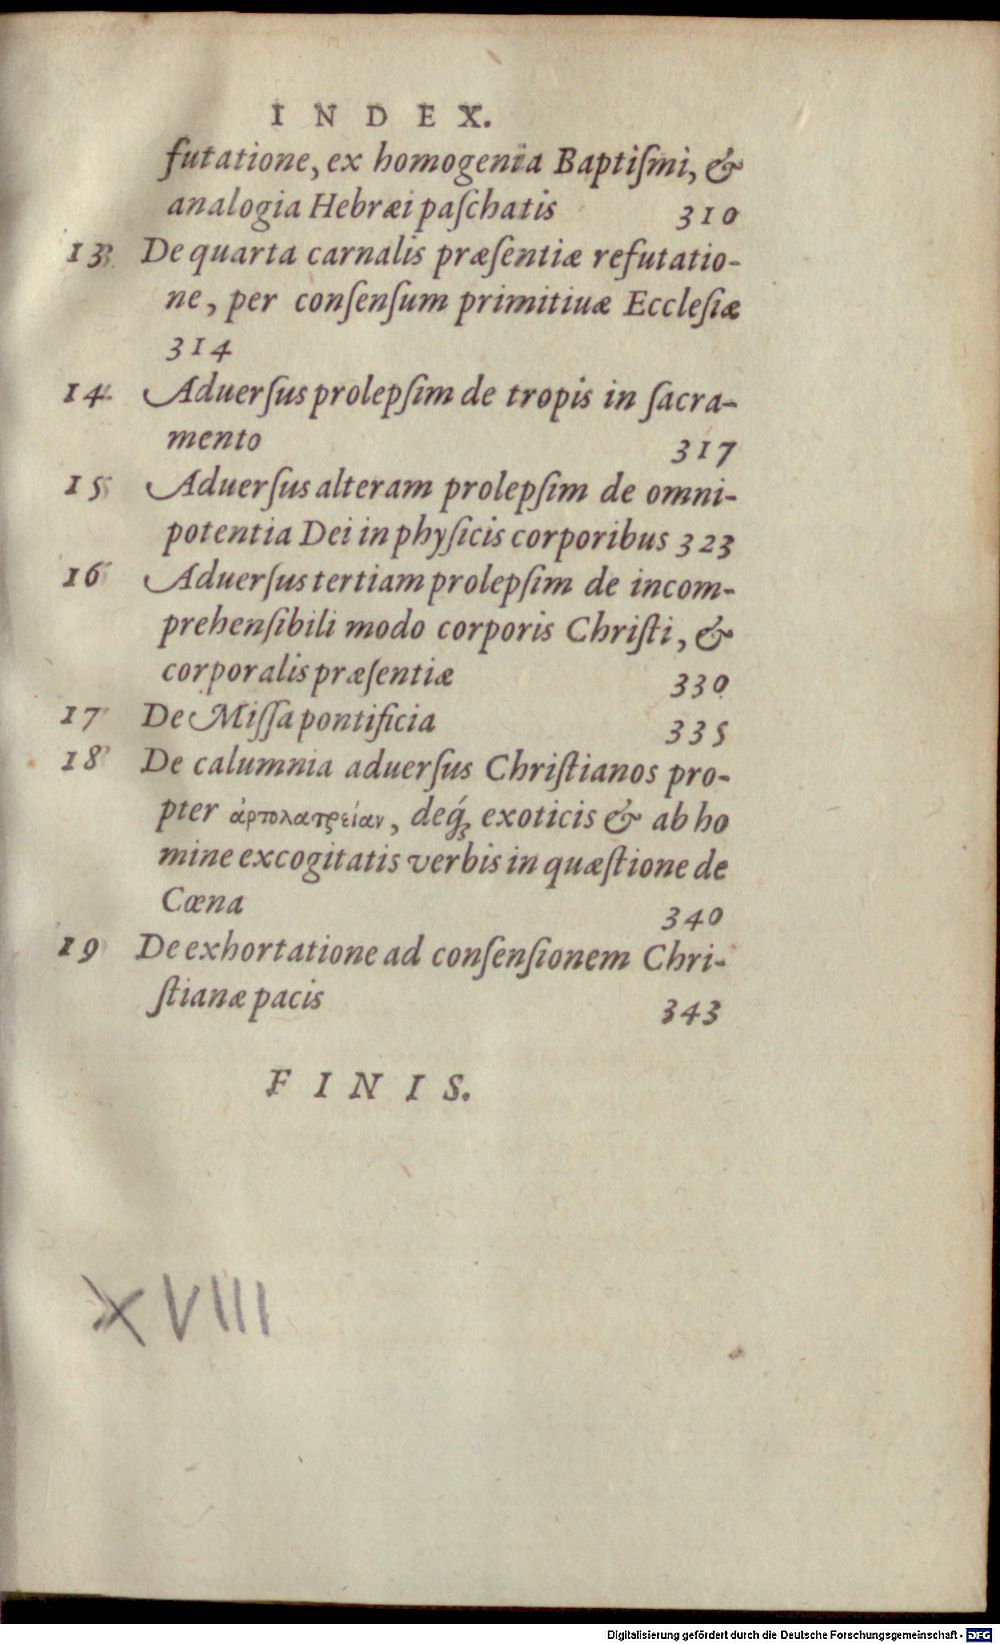 INDEX.
futatione, ex homogenia Baptiſmi, &
analogia Hebræi paſchatis 310
13 De quarta carnalis præſentiæ refutatio-
ne, per conſenſum primitiuæ Eccleſiæ
314
14 Aduerſus prolepſim de tropis in ſacra-
mento 317
15 Aduerſus alteram prolepſim de omni-
potentia Dei in phyſicis corporibus 323
16 Aduerſus tertiam prolepſim de incom-
prehenſibili modo corporis Chriſti, &
corporalis præſentiæ 330
17 De Miſſa pontificia 335
18 De calumnia aduerſus Chriſtianos pro-
pter ἀρτολατρείαν, deq́; exoticis & ab ho
mine excogitatis verbis in quæſtione de
Cœna 340
19 De exhortatione ad conſenſionem Chri-
ſtianæ pacis 343
FINIS.
XVIII
Digitalisierung gefördert durch die Deutsche Forschungsgemeinschaft - DFG